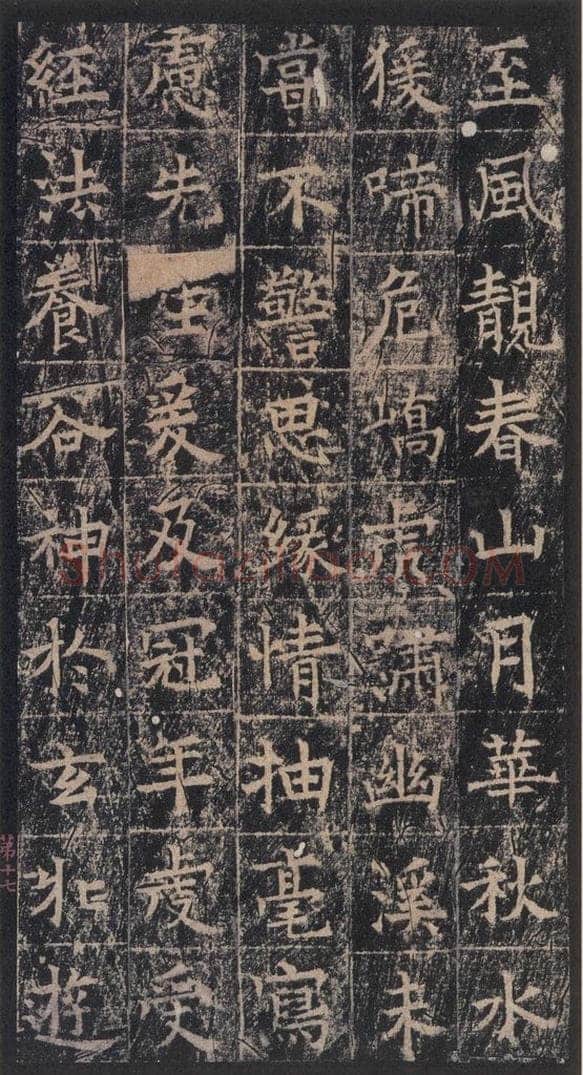 至風靚春山月華秋水
猨啼危嶠虎嘯幽溪未
當不警思緣情抽毫寫
慮先蚩爰及冠年虔受
經法養谷神於玄牝遊
第十七
shufaziliao.COM